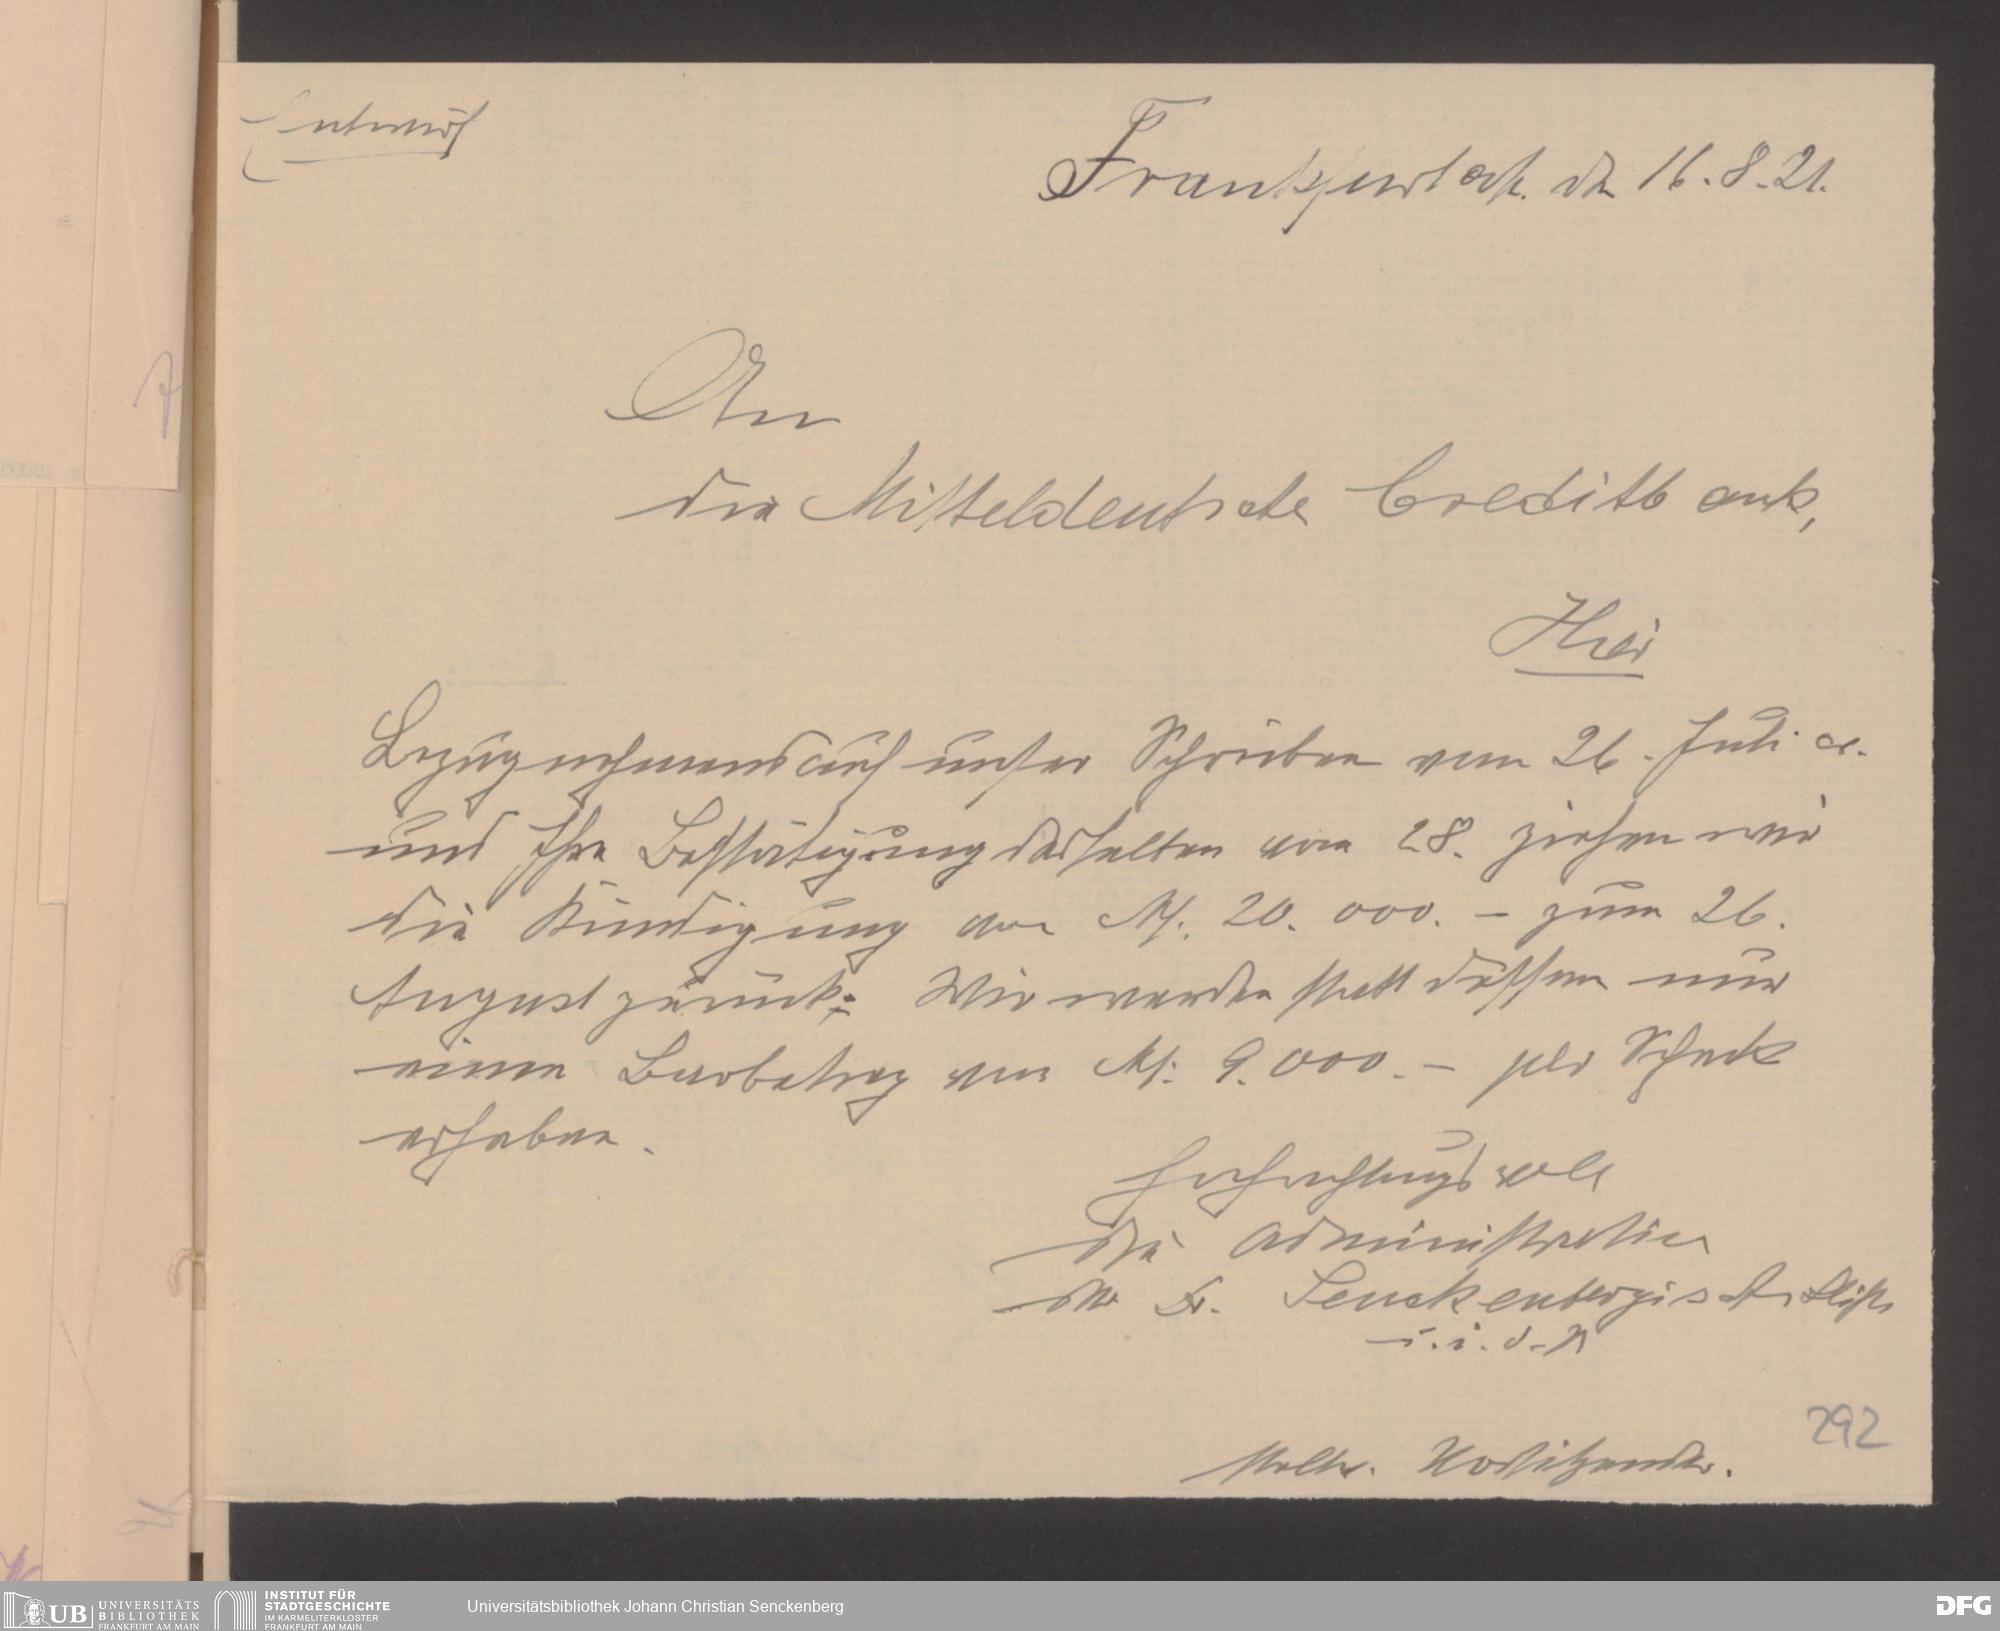 Entwurf
Frankfurt a/M. den 16. 8. 21.
An
die Mitteldeutsche Creditbank,
Hier
Bezugnehmend auf unser Schreiben vom 26. Juli cr.
und Ihre Bestätigung desselben vom 28. ziehen wir
die Kündigung von M. 20.000.– zum 26.
August zurück. Wir werden statt dessen nur
einen Barbetrag von M. 9.000.– per Scheck
erheben.
Hochachtungsvoll
Die Administration
der Dr. Senckenbergischen Stift.
i. d. N
292
stellv. Vorsitzender.
UB UNIVERSITÄTS
BIBLIOTHEK
FRANKFURT AM MAIN
INSTITUT FÜR
STADTGESCHICHTE
IM KARMELITERKLOSTER
FRANKFURT AM MAIN
Universitätsbibliothek Johann Christian Senckenberg
DFG